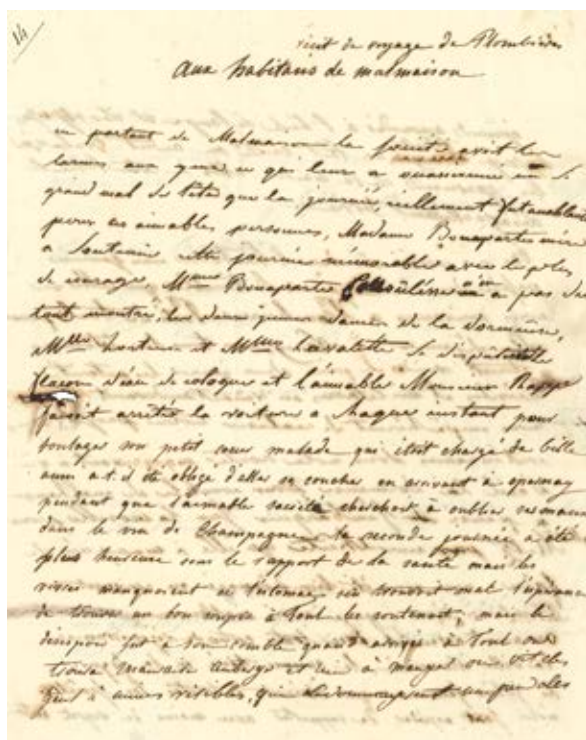 14
récit de voyage de Plombières
aux habitans de malmaison
en partant de Malmaison la société avoit les
larmes aux yeux ce qui leur a occasionné un si
grand mal de tête que la journée, réellement fut accablante
pour ces aimables personnes, Madame Bonaparte mère
a soutenu cette journée mémorable avec le plus
de courage, Mme Bonaparte Consulésse n'en a pas du
tout montré, les deux jeunes dames de la dormeuse,
Mlle hortense et Mme Lavalette se disputoient le
flacon d'eau de cologne et l'aimable Monsieur Rapp
faisoit arrêter la voiture à chaque instant pour
soulager son petit cœur malade qui étoit chargé de bille
aussi a-t-il été obligé d'aller se coucher en arrivant à épernay
pendant que l'aimable société cherchoit à oublier ses maux
dans le vin de Champagne la seconde journée a été
plus heureuse sous le rapport de la santé mais les
vivres manquoient et l'estomac s'en trouvoit mal l'espérance
de trouver un bon soupé à Toul les soutenoit, mais le
désespoir fut à son comble quand arrivés à Toul on
trouva mauvaise auberge et rien à manger on vit des
gens à mines risibles, qui dédommagèrent un peu des